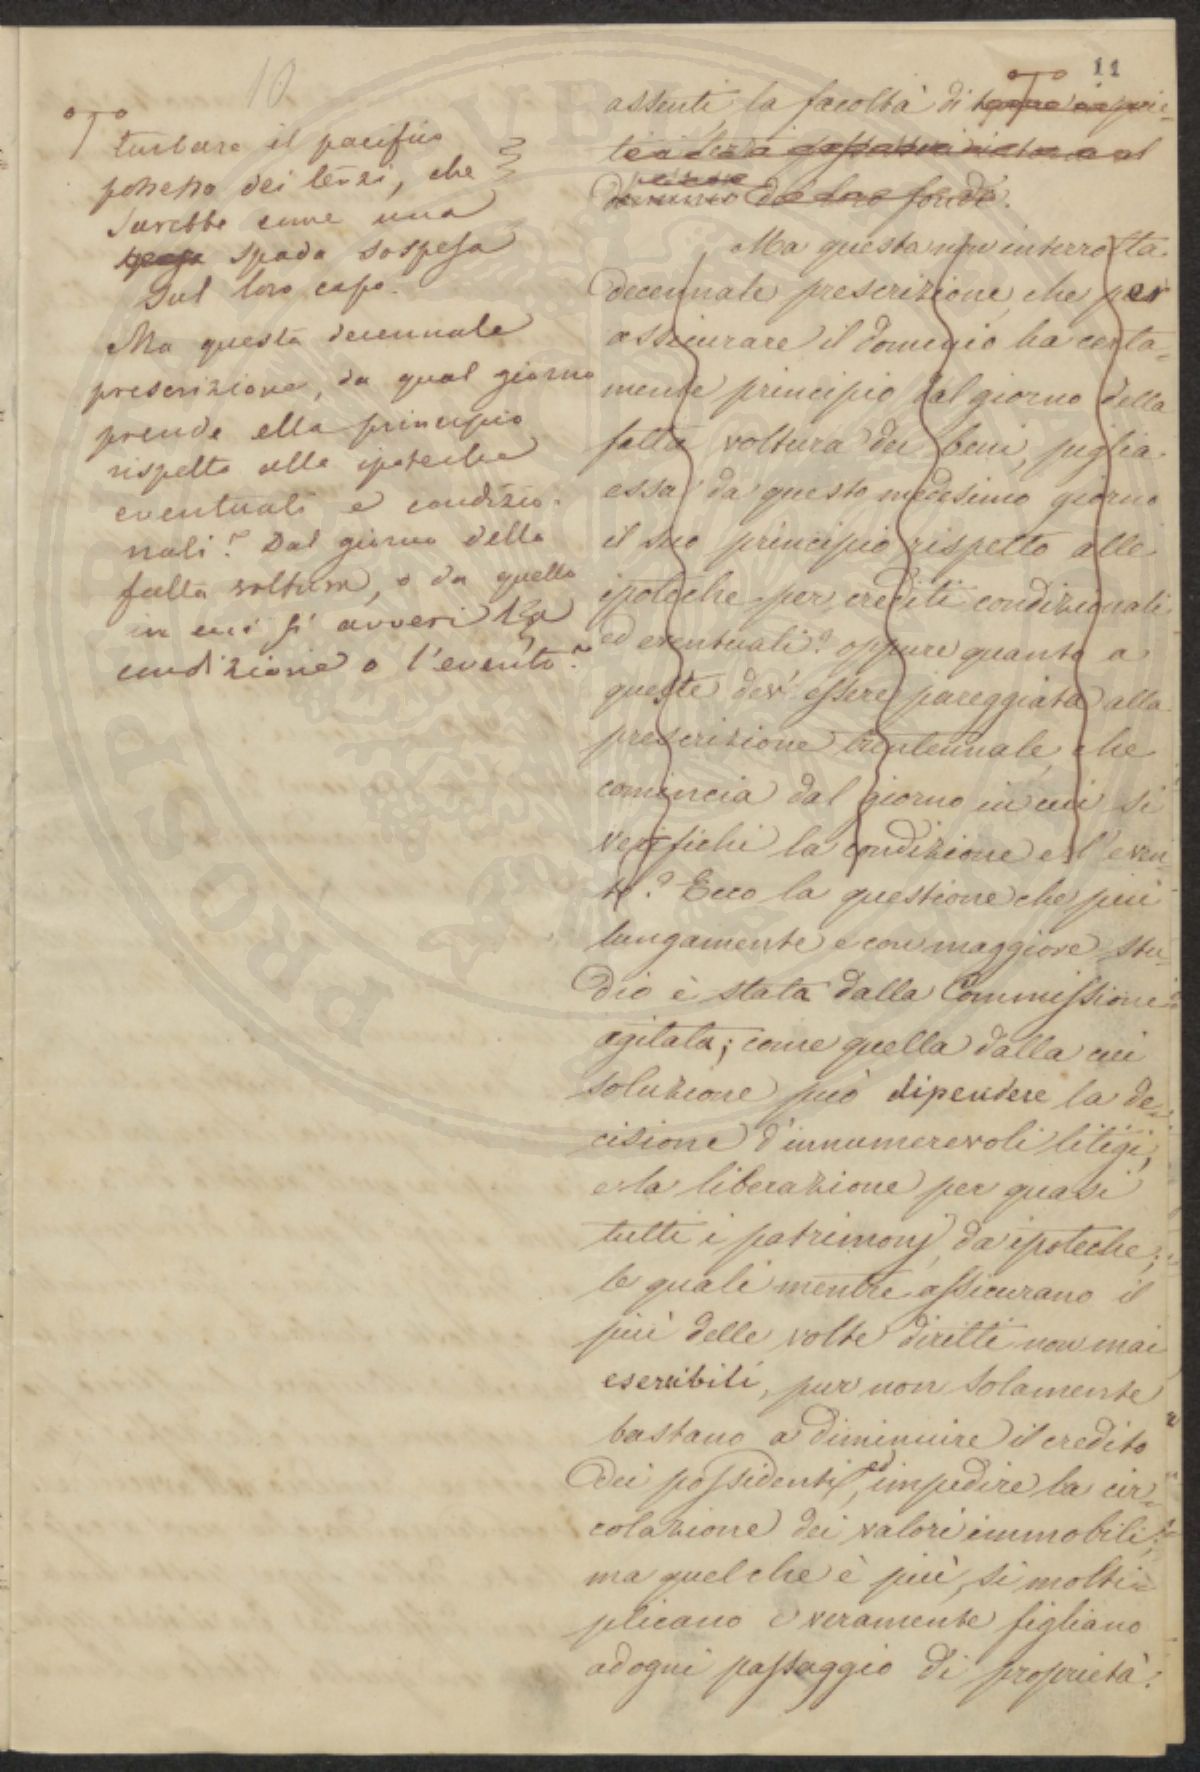 10
11
turbare il pacifico
possesso dei terzi, che
sarebbe come una
spada sospesa
sul loro capo.
Ma questa decennale
prescrizione, da qual giorno
prende ella principio
rispetto alle ipoteche
eventuali e condizio-
nali? Dal giorno della
fatta voltura, o da quello
in cui si avveri la
condizione o l'evento?
assenti, la facoltà di
dominio de loro fondi.
Ma questa non interrotta
decennale prescrizione, che per
assicurare il dominio ha certa-
mente principio dal giorno della
fatta voltura dei beni, piglia
essa da questo medesimo giorno
il suo principio rispetto alle
ipoteche per crediti condizionali
ed eventuali? oppure quanto a
queste dev'essere pareggiata alla
prescrizione trentennale, che
comincia dal giorno in cui si
verifichi la condizione e l'even-
to? Ecco la questione che più
lungamente e con maggiore stu-
dio è stata dalla Commissione
agitata; come quella dalla cui
soluzione può dipendere la de-
cisione d'innumerevoli litigi,
e la liberazione per quasi
tutti i patrimonj da ipoteche;
le quali mentre assicurano il
più delle volte diritti non mai
esercibili, pur non solamente
bastano a diminuire il credito
dei possidenti, ed impedire la cir-
colazione dei valori immobili;
ma quel che è più, si molti-
plicano e veramente figliano
ad ogni passaggio di proprietà.